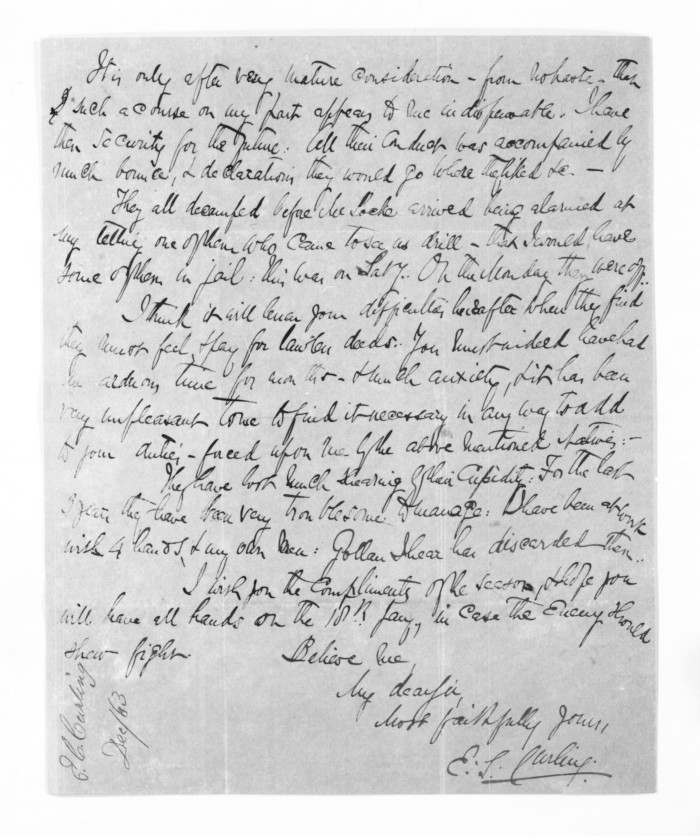 It is only after very mature consideration - from no haste - that
such a course on my part appears to me indispensable. I have
then security for the future: All their conduct was accompanied by
much bounce, & declarations they would go where they liked &c. -
They all decamped before Mr Locke arrived being alarmed at
my telling one of them who came to see us drill - that I would have
some of them in jail: this was on Saty. On the Monday they were off.
I think it will lessen your difficulties hereafter when they find
they must feel & pay for lawless deeds. You must indeed have had
an arduous time for months - & much anxiety, & it has been
very unpleasant to me to find it necessary in any way to add
to your duties - forced upon me by the above mentioned Natives: -
They have lost much shearing by their Cupidity: For the last
3 years they have been very troublesome to manage: I have been at work
with 4 hands, & my own men: Gollan I hear has discarded them..
I wish you the Compliments of the season, & hope you
will have all hands on the 18th Jany, in case the Enemy should
shew fight.
Believe me,
My dear Sir,
Most faithfully Yours,
E. S. Curling.
E. S. Curling
Dec/63